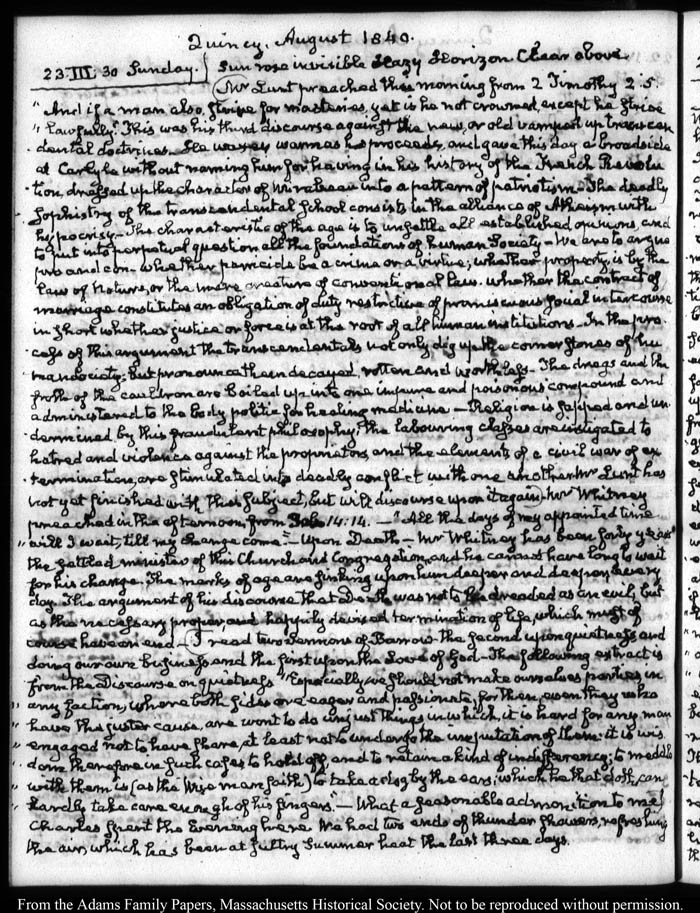 Quincy, August 1840.
23. III. 30 Sunday. Sun rose invisible Hazy Horizon. Clear above.
Mr Lunt preached this morning from 2 Timothy 2.5.
"And if a man also strive for masteries, yet is he not crowned except he strive
"lawfully." This was his third discourse against the new, or old vamped up transcen
dental doctrines. He waxes warm as he proceeds, and gave this day a broadside
at Carlyle without naming him for having in his history of the French Revolu
tion, dressed up the character of Mirabeau into a pattern of patriotism. The deadly
sophistry of the transcendental School consists in the alliance of Atheism with
hypocrisy. The characteristic of the age is to unsettle all established opinions, and
to put into perpetual question all the foundations of human Society. We are to argue
pro and con whether parricide be a crime or a virtue; whether property is by the
law of Nature, or the mere creature of conventional law. whether the contract of
marriage constitutes an obligation of duty restrictive of promiscuous social intercourse
in short whether justice or force is at the root of all human institutions. In the pro
cess of this argument the transcendentals not only dig up the corner stones of hu
man society; but pronounce them decayed, rotten and worthless. The dregs and the
froth of the cauldron are boiled up into one impure and poisonous compound and
administered to the body politic for healing medicine — Religion is sapped and un
dermined by this fraudulent philosophy, the labouring classes are instigated to
hatred and violence against the proprietors, and the elements of a civil war of ex
termination, are stimulated into deadly conflict with one another. Mr Lunt has
not yet finished with this subject, but will discourse upon it again. Mr Whitney
preached in the afternoon, from Job 14:14. — "All the days of my appointed time
"will I wait, till my change come" — Upon Death — Mr Whitney has been forty years
the settled minister of this Church and Congregation, and he cannot have long to wait
for his change. The marks of age are sinking upon him deeper and deeper every
day. The argument of his discourse that Death was not to be dreaded as an evil, but
as the necessary proper and happily devised termination of life, which must of
course have an end — I read two Sermons of Barrow the second upon quietness and
doing our own business and the first upon the Love of God — The following extract is
from the Discourse on quietness "Especially, we should not make ourselves parties in
"any faction, where both sides are eager and passionate, for then, even they who
"have the juster cause, are wont to do unjust things in which, it is hard for any man
"engaged not to have share, at least not to undergo the imputation of them: it is wis
"dom therefore in such cases to hold off, and to retain a kind of indifferency; to meddle
"with them is (as the Wise man saith) to take a dog by the ears; which he that doth, can
"hardly take care enough of his fingers" — What a seasonable admonition to me!
Charles spent the Evening here. We had two ends of thunder showers, refreshing
the air, which has been at sultry Summer heat the last three days.
From the Adams Family Papers, Massachusetts Historical Society. Not to be reproduced without permission.